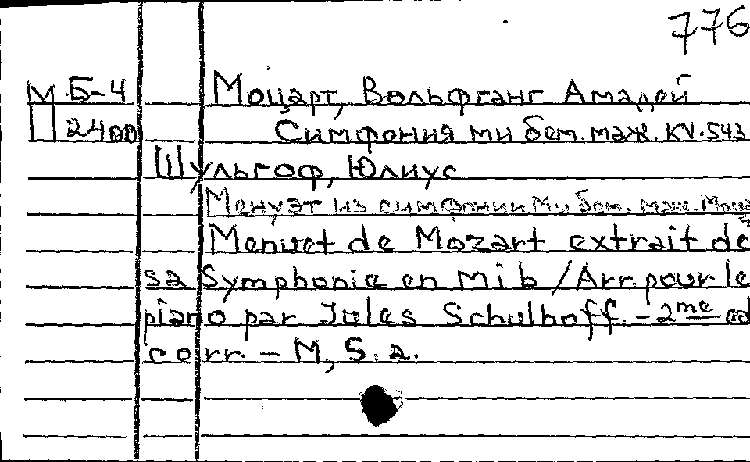 776
М Б-4 Моцарт, Вольфганг Амадей
Ц 2400 Симфония ми бем. маж. KV.543
Шульгоф, Юлиус
Менуэт из симфонии Ми бем. маж. Моца
Menuet de Mozart extrait de
sa Symphonie en Mi b / Arr. pour le
piano par Jules Schulhoff. - 2me ed
corr. - M, S. a.